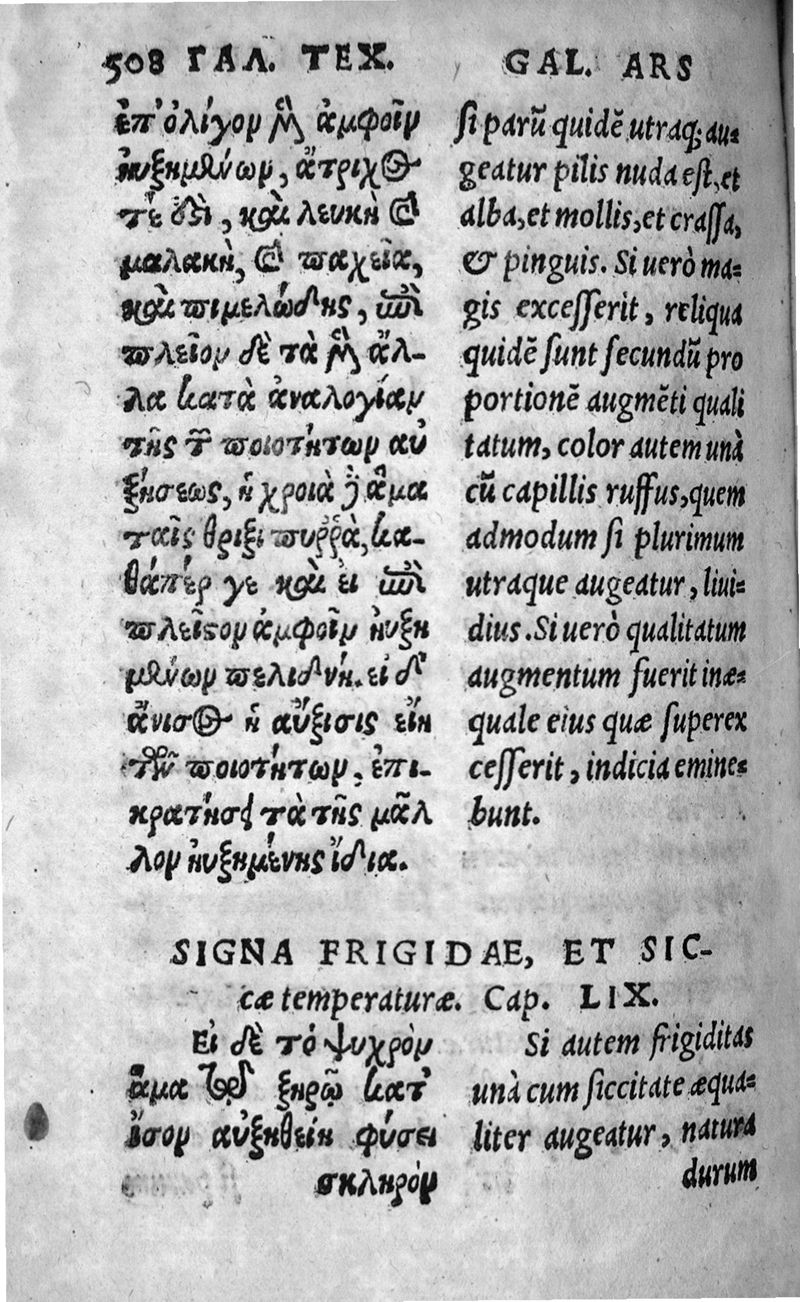 508 ΓΑΛ. ΤΕΧ.
ἐπ' ὀλίγον μὲν ἀμφοῖν
ἠυξημένων, ἄτριχος
τέ ὅτι, καὶ λευκὴ καὶ
μαλακὴ, καὶ παχεῖα,
καὶ πιμελώδης, ἐπὶ
πλεῖον δὲ τὰ μὲν ἄλ-
λα κατὰ ἀναλογίαν
τῆς τῶν ποιοτήτων αὐ
ξήσεως, ἡ χροιὰ δ' ἅμα
ταῖς θριξὶ πυῤῥὰ, κα-
θάπέρ γε καὶ εἰ ἐπὶ
πλεῖστον ἀμφοῖν ἠυξη
μένων πελιδνή. εἰ δ'
ἄνισος ἡ αὔξισις εἴη
τῶν ποιοτήτων, ἐπι-
κρατήσει τὰ τῆς μᾶλ
λον ἠυξημένης ἴδια.
GAL. ARS
si parũ quidẽ utraq; au-
geatur pilis nuda est, et
alba, et mollis, et crassa,
& pinguis. Si uerò ma-
gis excesserit, reliqua
quidẽ sunt secundũ pro
portionẽ augmẽti quali
tatum, color autem unà
cũ capillis ruffus, quem
admodum si plurimum
utraque augeatur, liui-
dius. Si uerò qualitatum
augmentum fuerit inæ-
quale eius quæ superex
cesserit, indicia emine-
bunt.
SIGNA FRIGIDAE, ET SIC-
cæ temperaturæ. Cap. LIX.
Εἰ δὲ τὸ ψυχρὸν
ἅμα τῷ ξηρῷ κατ'
ἴσον αὐξηθείη φύσει
σκληρὸν
Si autem frigiditas
unà cum siccitate æqua-
liter augeatur, natura
durum